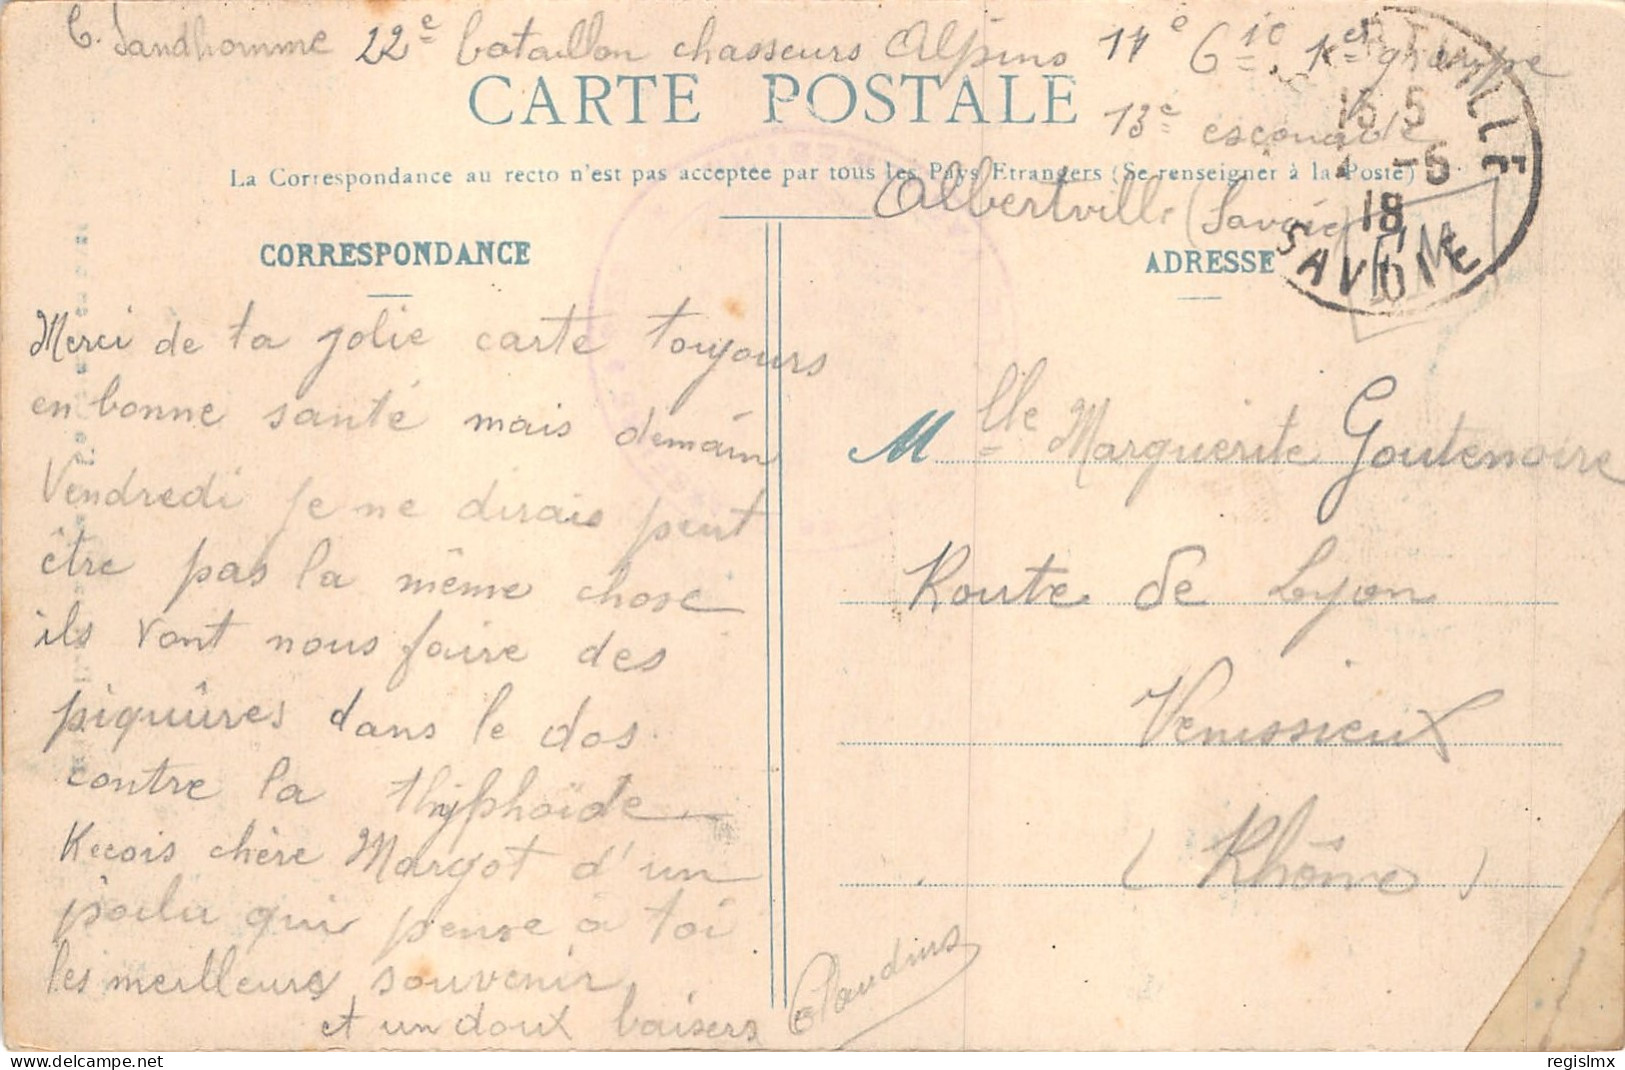 C. Sandhomme 22e bataillon chasseurs Alpins 11e Cie 1er groupe
CARTE POSTALE
13e escouade
La Correspondance au recto n'est pas acceptée par tous les Pays Etrangers (Se renseigner à la Poste)
Albertville (Savoie)
ALBERTVILLE
15 5
-5
18
SAVOIE
F.M
CORRESPONDANCE
ADRESSE
Merci de ta jolie carte toujours
en bonne santé mais demain
Vendredi je ne dirais peut
être pas la même chose
ils vont nous faire des
piquûres dans le dos
contre la thyphoïde
Reçois chère Margot d'un
poilu qui pense à toi
les meilleurs souvenir
et un doux baisers
Claudius
Mlle Marguerite Goutenoire
Route de Lyon
Venissieux
(Rhône)
regislmx